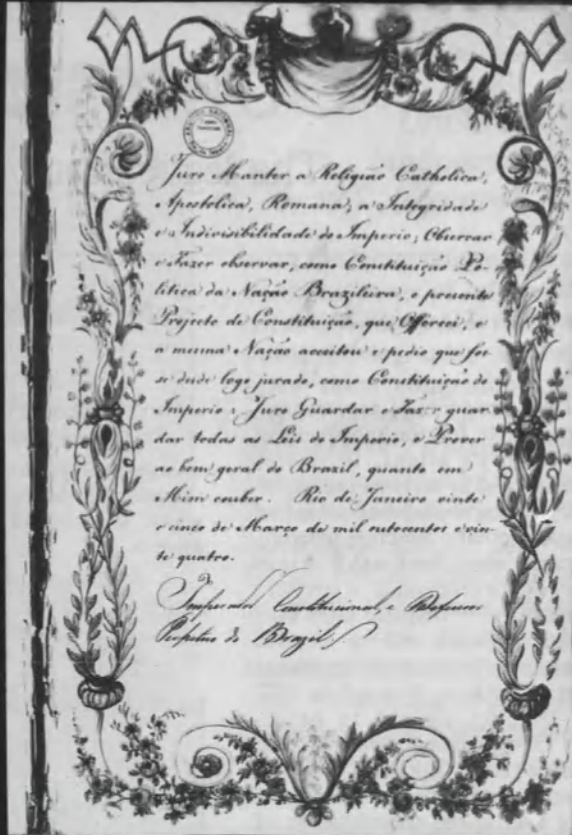 Juro Manter a Religião Catholica,
Apostolica, Romana, a Integridade
e Indivisibilidade do Imperio; Observar
e Fazer observar, como Constituição Po-
litica da Nação Brazileira, o presente
Projecto de Constituição, que Offereci, e
a mesma Nação acceitou e pedio que fos-
se desde logo jurado, como Constituição do
Imperio: Juro Guardar e Fazer guar-
dar todas as Leis do Imperio, e Prover
ao bem geral do Brazil, quanto em
Mim couber. Rio de Janeiro vinte
e cinco de Março de mil outocentos e vin-
te quatro.
Imperador Constitucional, e Defensor
Perpetuo do Brazil